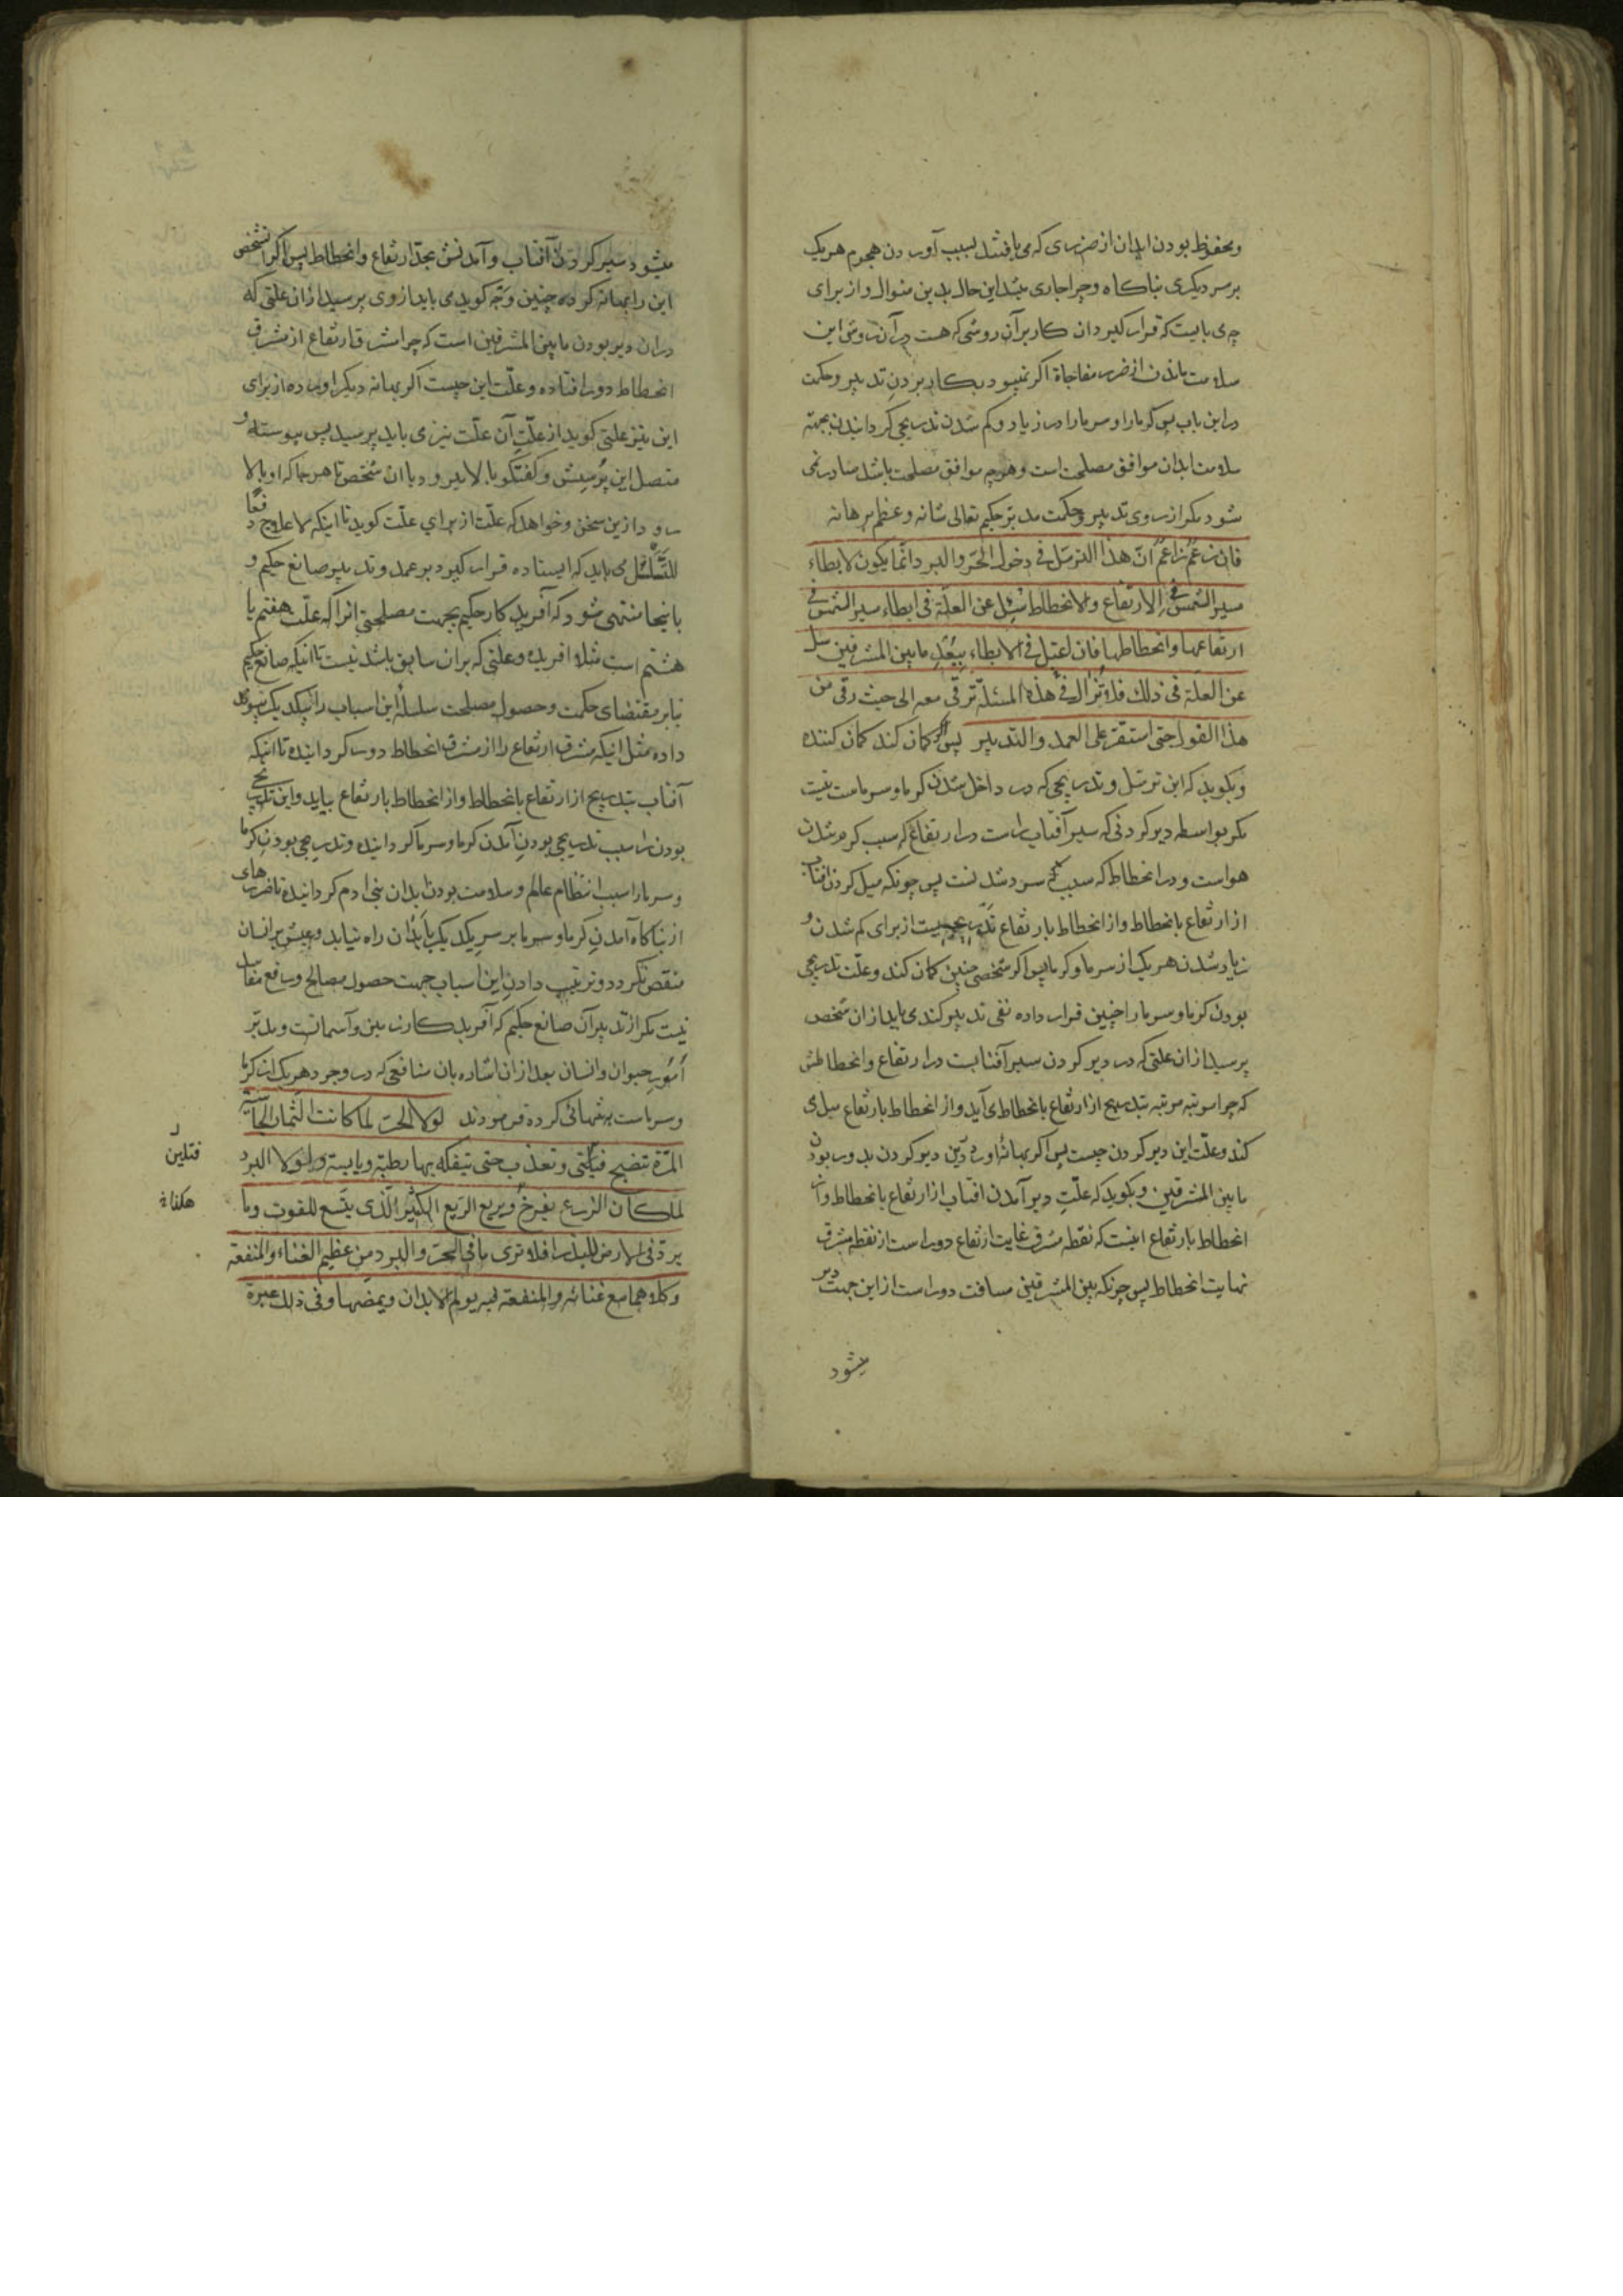 ومحفوظ بودن ابدان از ضرری که می یافتند بسبب آوردن هجوم هریک
بر سر دیکری بناکاه وچرا جاری میشد این حال بدین منوال واز برای
چه می بایست که قرار کیرد ان کار بر آن روشی که هست در آن روش این
سلامت ماندن از ضرر مفاجاة اکر نمیبود بکار بردن تدبیر وحکمت
در این باب پس کرما را وسرما را در زیاد وکم شدن تدریجی کردانیدن بجهته
سلامت ابدان موافق مصلحت است وهرچه موافق مصلحت باشد صادر نمی
شود مکر از روی تدبیر وحکمت مدبّر حکیم تعالی شانه وعظم برهانه
فان زعم زاعم انّ هذا الترسّل فی دخول الحرّ والبرد انّما یکون لابطاء
مسیر الشمس فی الارتفاع والانحطاط سُئِل عن العلّة فی ابطاء سیر الشمس فی
ارتفاعها وانحطاطها فان اعتل فی الابطاء ببُعْدِ مابین المشرقین سئل
عن العلّة فی ذلك فلا تزال فی هذه المسئلة ترقی معه الی حیث رقی من
هذا القول حتی استقرّ علی العمد والتدبیر پس اکر کمان کند کمان کننده
وبکوید که این ترسّل وتدریجی که در داخل شدن کرما وسرماست نیست
مکر بواسطه دیر کردنی که سیر آفتاب راست در ارتفاع که سبب کرم شدن
هواست ودر انحطاط که سبب سرد شدنست پس چونکه میل کردن افتاب
از ارتفاع بانحطاط واز انحطاط بارتفاع تدریجیست از برای کم شدن و
زیاد شدن هریک از سرما وکرما پس اکر شخصی چنین کمان کند وعلّت تدریجی
بودن کرما وسرما را چنین قرار داده نفی تدبیر کند می باید از ان شخص
پرسید از ان علتی که در دیر کردن سیر آفتابست در ارتفاع وانحطاطش
که چرا مرتبه مرتبه بتدریج از ارتفاع بانحطاط می آید واز انحطاط بارتفاع میل می
کند وعلّت این دیر کردن چیست پس اکر بهانه آورد در این دیر کردن بدور بودن
مابین المشرقین وبکوید که علّت دیر آمدن افتاب از ارتفاع بانحطاط واز
انحطاط بارتفاع اینست که نقطه مشرق غایت ارتفاع دور است از نقطه مشرق
نهایت انحطاط پس چونکه بین المشرقین مسافت دور است از این جهت دیر
میشود
میشود سیر کردن آفتاب وآمدنش بحدّ ارتفاع وانحطاط پس اکر آنشخص
این را بهانه کرده چنین وجه کوید می باید از وی پرسید از ان علتی که
در ان دیر بودن مابین المشرقین است که چرا مشرق ارتفاع از مشرق
انحطاط دور افتاده وعلّت این چیست اکر بهانه دیکر اورده از برای
این نیز علتی کوید از علّتِ آن علّت نیز می باید پرسید پس پیوسته و
متصل این پرسش وکفتکو بالا میرود با ان شخص تا هر جا که او بالا
رود از ین سخن وخواهد که علّت از برای علّت کوید تا اینکه لاعلاج دفعًا
للتّسلسُل می باید که ایستاده قرار کیرد بر عمد وتدبیر صانع حکیم و
باینجا منتهی شود که آفرید کار حکیم بجهت مصلحتی اثرا که علّت هفتم یا
هشتم است مثلا افریده وعلتی که بر ان سابق باشد نیست تا اینکه صانع حکیم
بنابر مقتضای حکمت وحصول مصلحت سلسلۀ این اسباب را بیکدیکر پیوند
داده مثل اینکه مشرق ارتفاع را از مشرق انحطاط دور کردانیده تا اینکه
آفتاب بتدریج از ارتفاع بانحطاط واز انحطاط بارتفاع بیاید واین تدریجی
بودن را سبب تدریجی بودنِ آمدن کرما وسرما کردانیده وتدریجی بودنِ کرما
وسرما را سبب انتظام عالم وسلامت بودن ابدان بنی ادم کردانیده تا ضررهای
از بناکاه آمدنِ کرما وسرما بر سرِ یکدیکر بابدان راه نیابد وعیش بر انسان
منقص نکردد وترتیب دادنِ این اسباب جهت حصول مصالح ورفع مفاسد
نیست مکر از تدبیر آن صانع حکیم که آفرید کار زمین وآسمانست ومدبّر
اُمُورِ حیوان وانسان بعد از ان اشاره بان منافعی که در وجود هریک از کرما
وسرماست بتنهائی کرده فرمودند لولا الحرّ لما کانت الثمار الجاسیة
المرّة تنضج فتلین وتعذب حتی یتفکّه بها رطبة ویابسة ولولا البرد
لما کان الزرع یفرخ ویریع الرّیع الکثیر الّذی یتّسع للقوت وما
یردّ فی الارض للبذر افلا تری مافی الحرّ والبرد من عظیم الغناء والمنفعة
وکلاهما مع غنائه والمنفعة فیه یولم الابدان ویمضها وفی ذلك عبرة
فتلین
هکذا